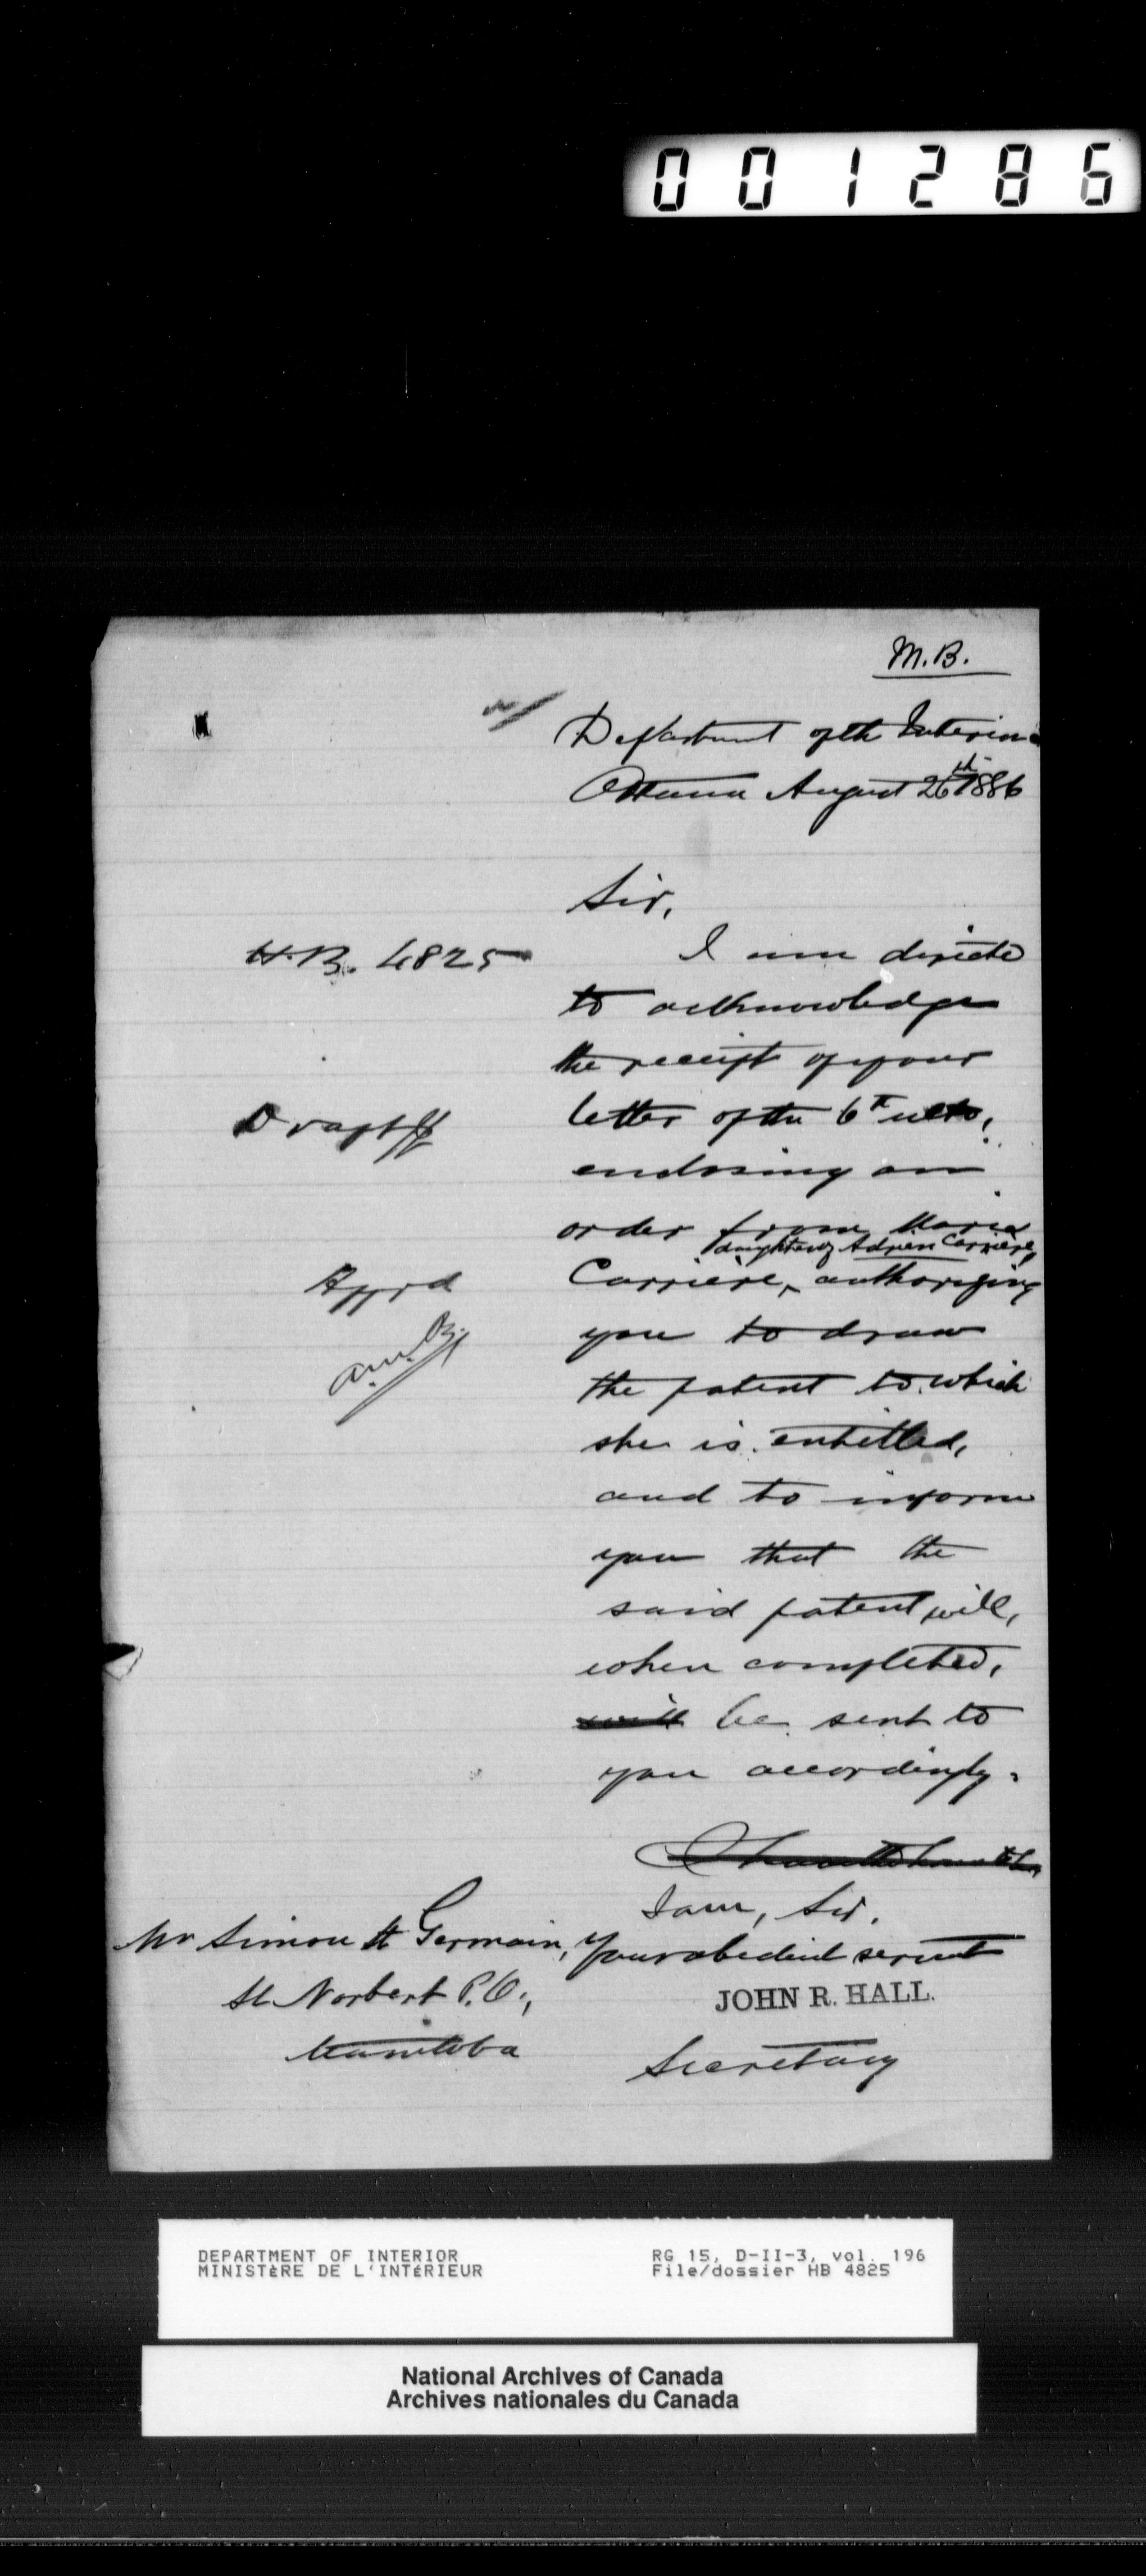 001286
M.B.
Department of the Interior
Ottawa August 26th 1886
Sir,
H.B. 4825
I am directed
to acknowledge
the receipt of your
Draft
letter of the 6th ulto,
enclosing an
order from Maria
daughter of Adrien Carrière,
Carrière, authorizing
Apprd
you to draw
the patent to which
she is entitled,
and to inform
you that the
said patent will,
when completed,
will be sent to
you accordingly.
I am, Sir,
Your obedient servant
Mr Simon St Germain,
St Norbert P.O.,
Manitoba
JOHN R. HALL.
Secretary
DEPARTMENT OF INTERIOR
MINISTÈRE DE L'INTÉRIEUR
RG 15, D-II-3, vol. 196
File/dossier HB 4825
National Archives of Canada
Archives nationales du Canada